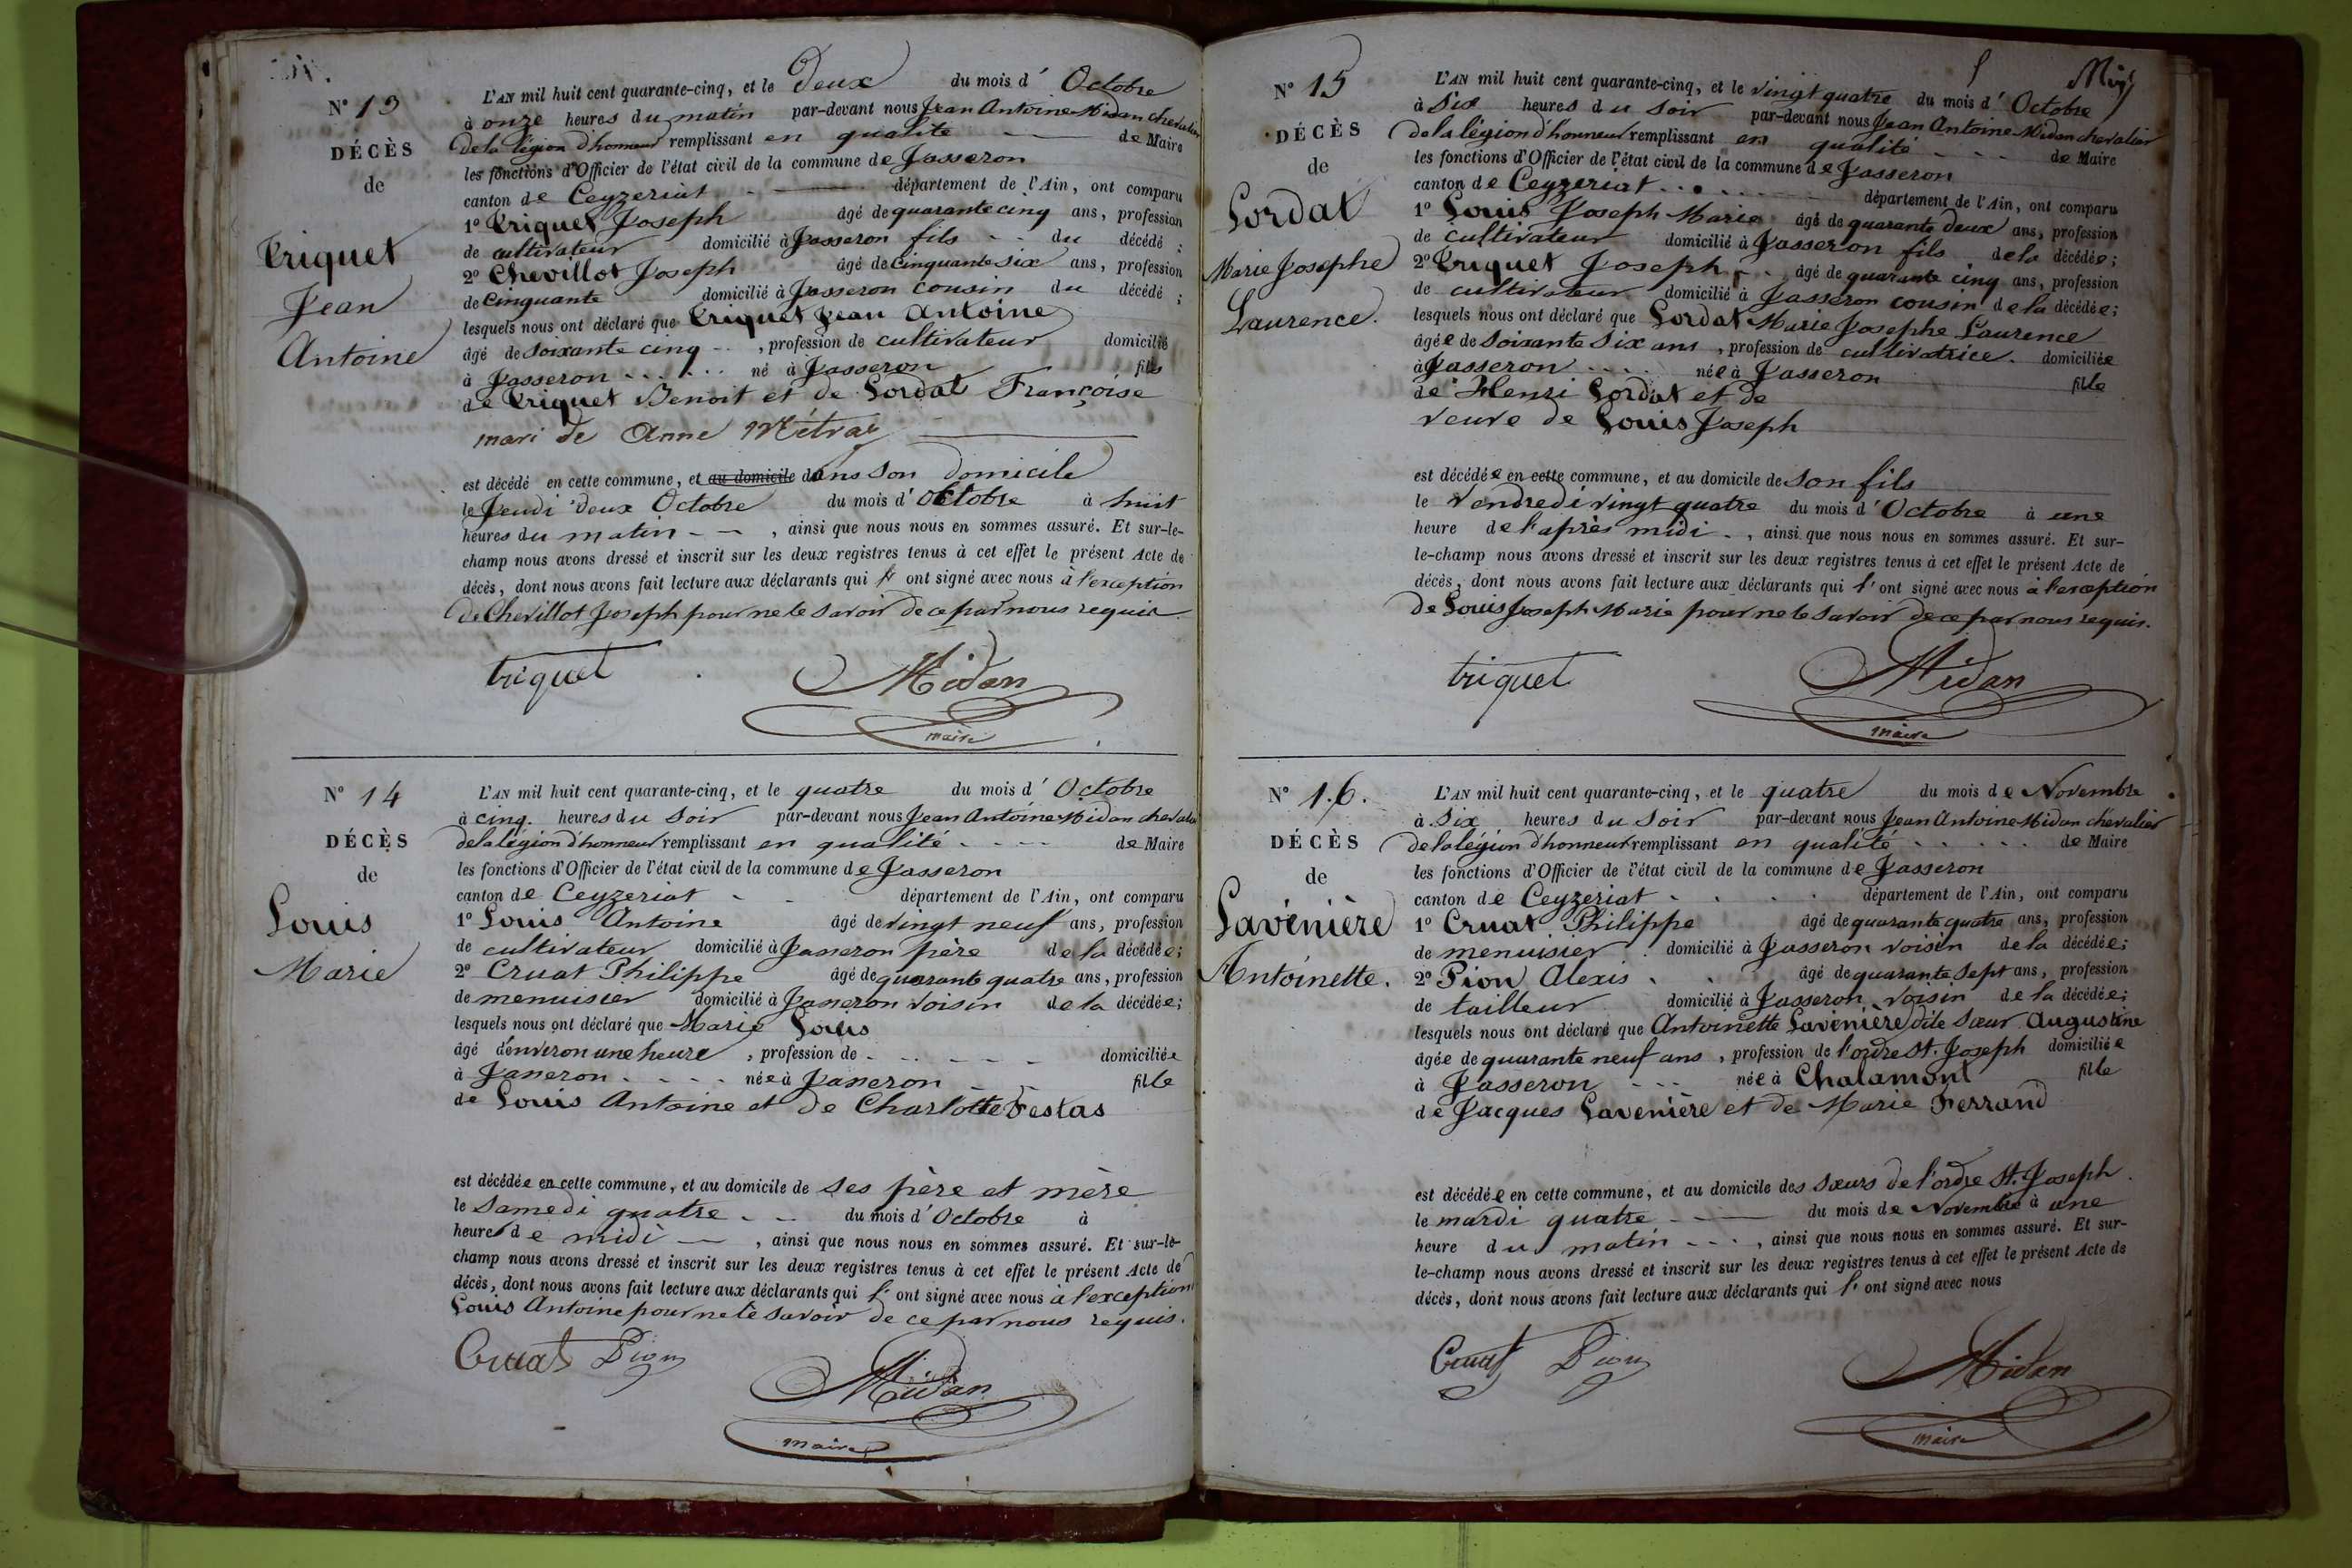 N° 13
DÉCÈS
de
Triquet
Jean
Antoine
L'AN mil huit cent quarante-cinq, et le Deux du mois d' Octobre
à onze heures du matin par-devant nous Jean Antoine Midan chevalier
de la légion d'honneur remplissant en qualité de Maire
les fonctions d'Officier de l'état civil de la commune de Jasseron
canton de Ceyzeriat département de l'Ain, ont comparu
1° Triquet Joseph âgé de quarante cinq ans, profession
de cultivateur domicilié à Jasseron fils du décédé ;
2° Chevillot Joseph âgé de cinquante six ans, profession
de cinquante domicilié à Jasseron cousin du décédé ;
lesquels nous ont déclaré que Triquet Jean Antoine
âgé de soixante cinq , profession de cultivateur domicilié
à Jasseron né à Jasseron fils
de Triquet Benoit et de Sordat Françoise
mari de Anne Métras
est décédé en cette commune, et au domicile dans son domicile
le Jeudi deux Octobre du mois d' Octobre à huit
heures du matin , ainsi que nous nous en sommes assuré. Et sur-le-
champ nous avons dressé et inscrit sur les deux registres tenus à cet effet le présent Acte de
décès, dont nous avons fait lecture aux déclarants qui l' ont signé avec nous à l'exception
de Chevillot Joseph pour ne le savoir de ce par nous requis
triquet Midan
maire
N° 14
DÉCÈS
de
Louis
Marie
L'AN mil huit cent quarante-cinq, et le quatre du mois d' Octobre
à cinq heures du soir par-devant nous Jean Antoine Midan chevalier
de la légion d'honneur remplissant en qualité de Maire
les fonctions d'Officier de l'état civil de la commune de Jasseron
canton de Ceyzeriat département de l'Ain, ont comparu
1° Louis Antoine âgé de vingt neuf ans, profession
de cultivateur domicilié à Jasseron père de la décédée;
2° Cruat Philippe âgé de quarante quatre ans, profession
de menuisier domicilié à Jasseron voisin de la décédée;
lesquels nous ont déclaré que Marie Louis
âgé d'environ une heure , profession de domiciliée
à Jasseron née à Jasseron fille
de Louis Antoine et de Charlotte Festas
est décédée en cette commune, et au domicile de ses père et mère
le samedi quatre du mois d' Octobre à
heures de midi , ainsi que nous nous en sommes assuré. Et sur-le-
champ nous avons dressé et inscrit sur les deux registres tenus à cet effet le présent Acte de
décès, dont nous avons fait lecture aux déclarants qui l' ont signé avec nous à l'exception
Louis Antoine pour ne le savoir de ce par nous requis.
Cruat Pion
Midan
maire
N° 15
DÉCÈS
de
Sordat
Marie Josephe
Laurence.
L'AN mil huit cent quarante-cinq, et le vingt quatre du mois d' Octobre
à six heures du soir par-devant nous Jean Antoine Midan chevalier
de la légion d'honneur remplissant en qualité de Maire
les fonctions d'Officier de l'état civil de la commune de Jasseron
canton de Ceyzeriat département de l'Ain, ont comparu
1° Louis Joseph Marie âgé de quarante deux ans, profession
de cultivateur domicilié à Jasseron fils de la décédée;
2° Triquet Joseph âgé de quarante cinq ans, profession
de cultivateur domicilié à Jasseron cousin de la décédée;
lesquels nous ont déclaré que Sordat Marie Josephe Laurence
âgée de soixante six ans , profession de cultivatrice. domiciliée
à Jasseron née à Jasseron fille
de Henri Sordat et de
veuve de Louis Joseph
est décédée en cette commune, et au domicile de son fils
le vendredi vingt quatre du mois d' Octobre à une
heure de l'après midi , ainsi que nous nous en sommes assuré. Et sur-
le-champ nous avons dressé et inscrit sur les deux registres tenus à cet effet le présent Acte de
décès, dont nous avons fait lecture aux déclarants qui l' ont signé avec nous à l'exception
de Louis Joseph Marie pour ne le savoir de ce par nous requis.
triquet Midan
maire
N° 16.
DÉCÈS
de
Lavenière
Antoinette.
L'AN mil huit cent quarante-cinq, et le quatre du mois de Novembre
à six heures du soir par-devant nous Jean Antoine Midan chevalier
de la légion d'honneur remplissant en qualité de Maire
les fonctions d'Officier de l'état civil de la commune de Jasseron
canton de Ceyzeriat département de l'Ain, ont comparu
1° Cruat Philippe âgé de quarante quatre ans, profession
de menuisier domicilié à Jasseron voisin de la décédée;
2° Pion Alexis âgé de quarante sept ans, profession
de tailleur domicilié à Jasseron voisin de la décédée;
lesquels nous ont déclaré que Antoinette Lavenière dite Sœur Augustine
âgée de quarante neuf ans , profession de l'ordre St. Joseph domiciliée
à Jasseron née à Chalamont fille
de Jacques Lavenière et de Marie Ferrand
est décédée en cette commune, et au domicile des sœurs de l'ordre St. Joseph
le mardi quatre du mois de Novembre à une
heure du matin , ainsi que nous nous en sommes assuré. Et sur-
le-champ nous avons dressé et inscrit sur les deux registres tenus à cet effet le présent Acte de
décès, dont nous avons fait lecture aux déclarants qui l' ont signé avec nous
Cruat Pion
Midan
maire